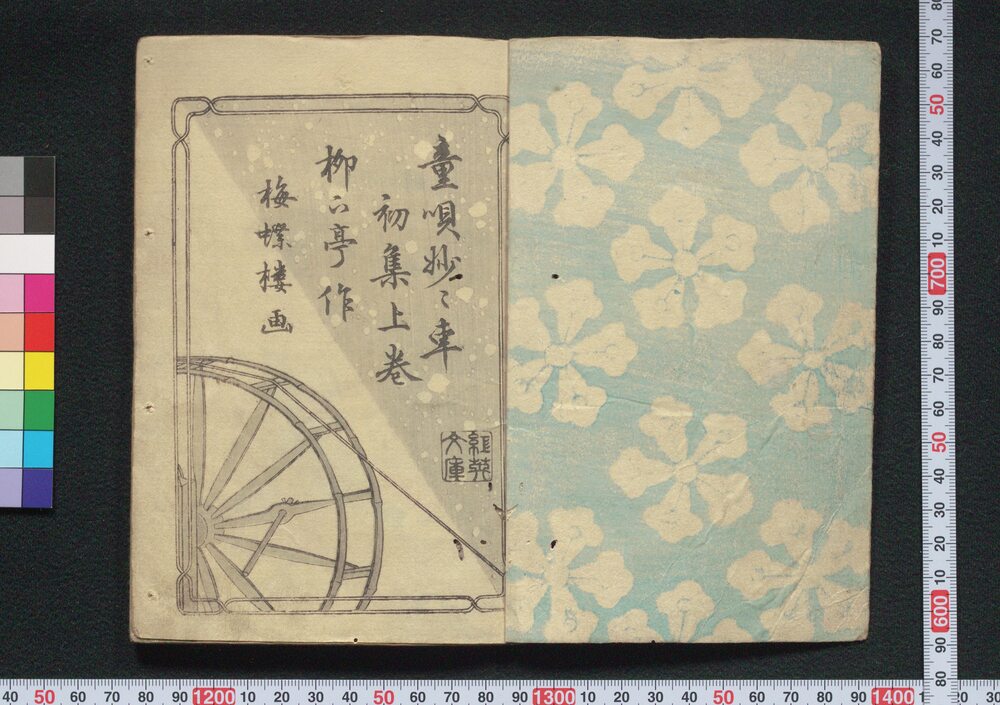 童唄妙々車
初集上巻
柳下亭作
梅蝶楼画
文庫
40 50 60 70 80 90 1200 10 20 30 40 50 60 70 80 90 1300 10 20 30 40 50 60 70 80 90 1400 20 30
80 70 60 50 40 30 20 10 700 90 80 70 60 50 40 30 20 10 600 90 80